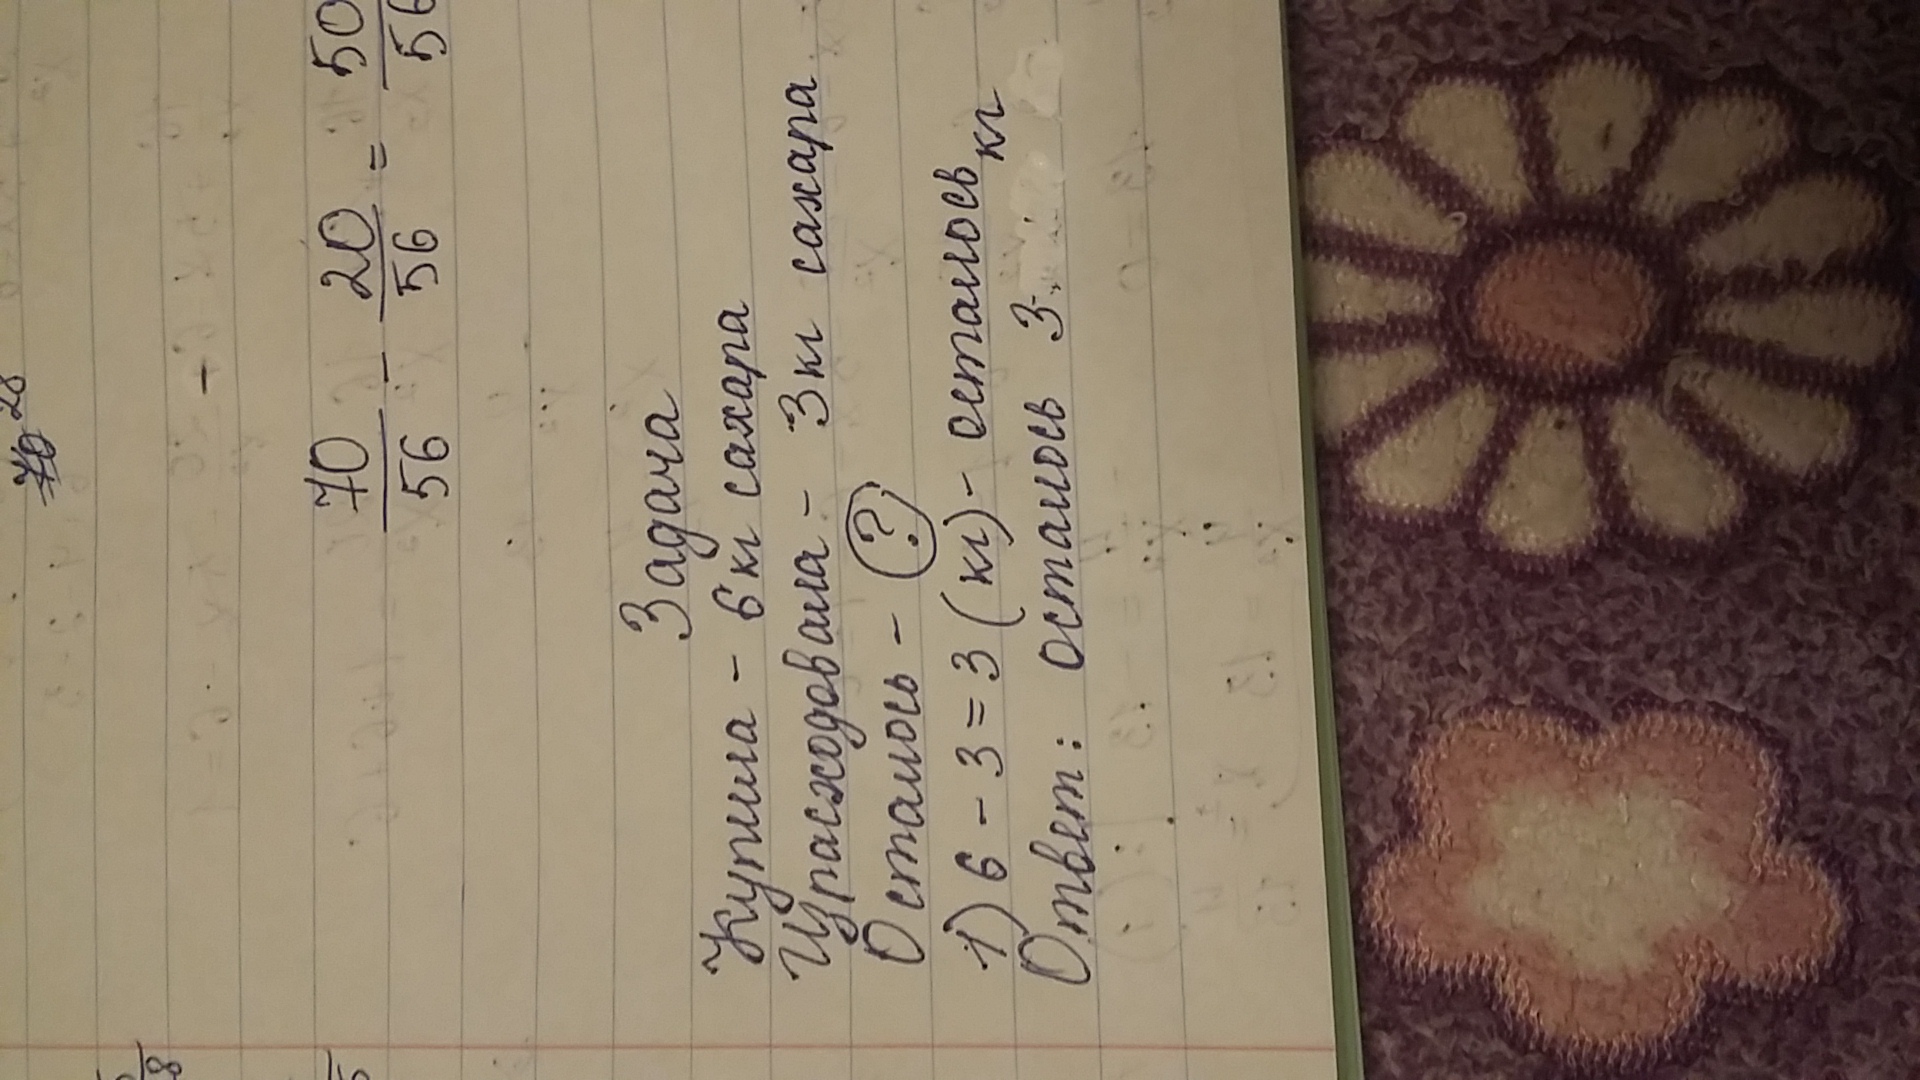 28
70/56 - 20/56 = 50/56
Задача
Купила - 6 кг сахара
Израсходовала - 3 кг сахара
Осталось - ?
1) 6 - 3 = 3 (кг) - осталось
Ответ: осталось 3 кг